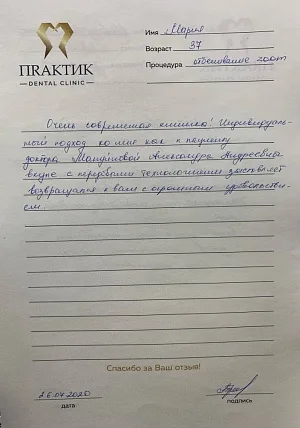 ПRAКТИК
DENTAL CLINIC
Имя Мария
Возраст 37
Процедура отбеливание zoom
Очень современная клиника! Индивидуаль-
ный подход ко мне как к пациенту
доктора Александра Андреевича
вкупе с передовыми технологиями заставляет
возвращаться к вам с огромным удовольстви-
ем.
Спасибо за Ваш отзыв!
26.07.2020
дата
подпись